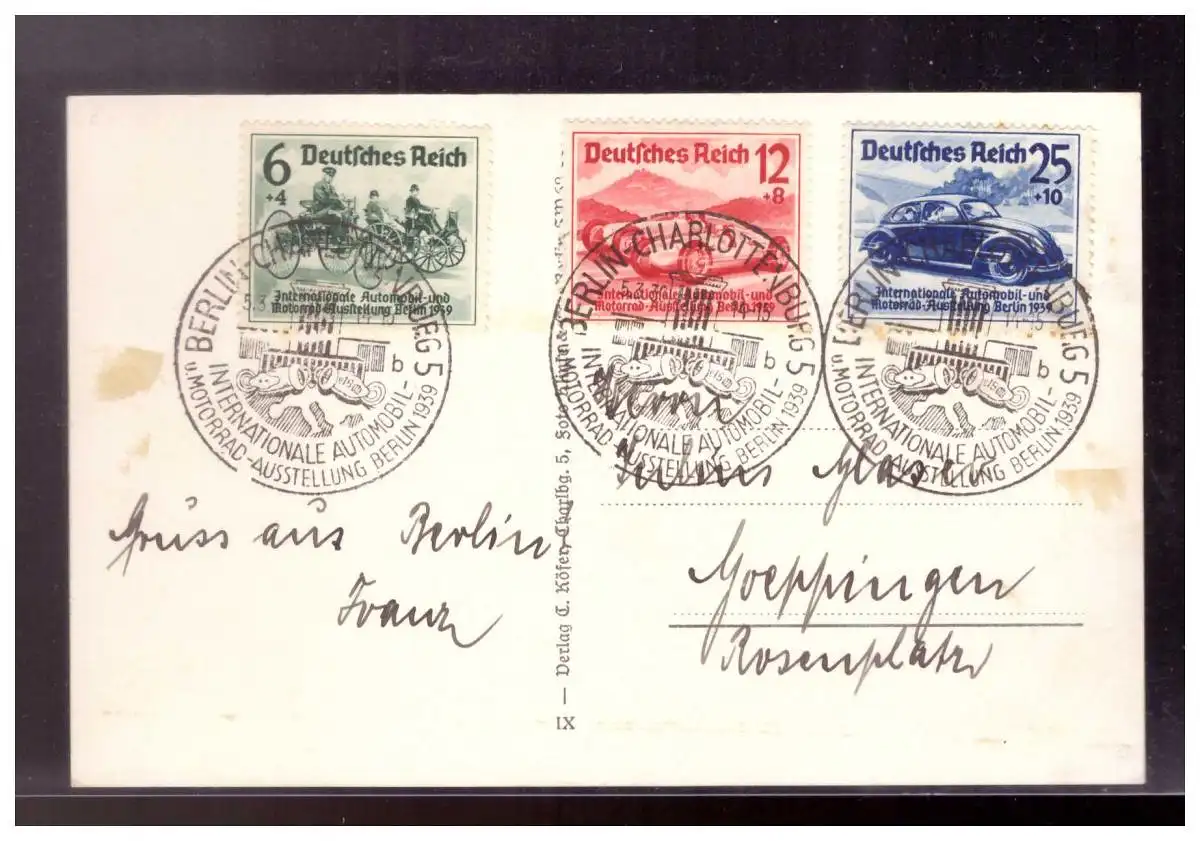 6 Deutsches Reich
+4
Internationale Automobil- und
Motorrad-Ausstellung Berlin 1939
Deutsches Reich 12
+8
Internationale Automobil- und
Motorrad-Ausstellung Berlin 1939
Deutsches Reich 25
+10
Internationale Automobil- und
Motorrad-Ausstellung Berlin 1939
BERLIN-CHARLOTTENBURG 5
5.3.39 14-15
b
INTERNATIONALE AUTOMOBIL-
u. MOTORRAD-AUSSTELLUNG BERLIN 1939
BERLIN-CHARLOTTENBURG 5
5.3.39 14-15
b
INTERNATIONALE AUTOMOBIL-
u. MOTORRAD-AUSSTELLUNG BERLIN 1939
BERLIN-CHARLOTTENBURG 5
b
INTERNATIONALE AUTOMOBIL-
u. MOTORRAD-AUSSTELLUNG BERLIN 1939
Gruss aus Berlin
Franz
Verlag C. Köfer, Charlbg. 5,
IX
Herrn
Julius Glaser
Goeppingen
Rosenplatz